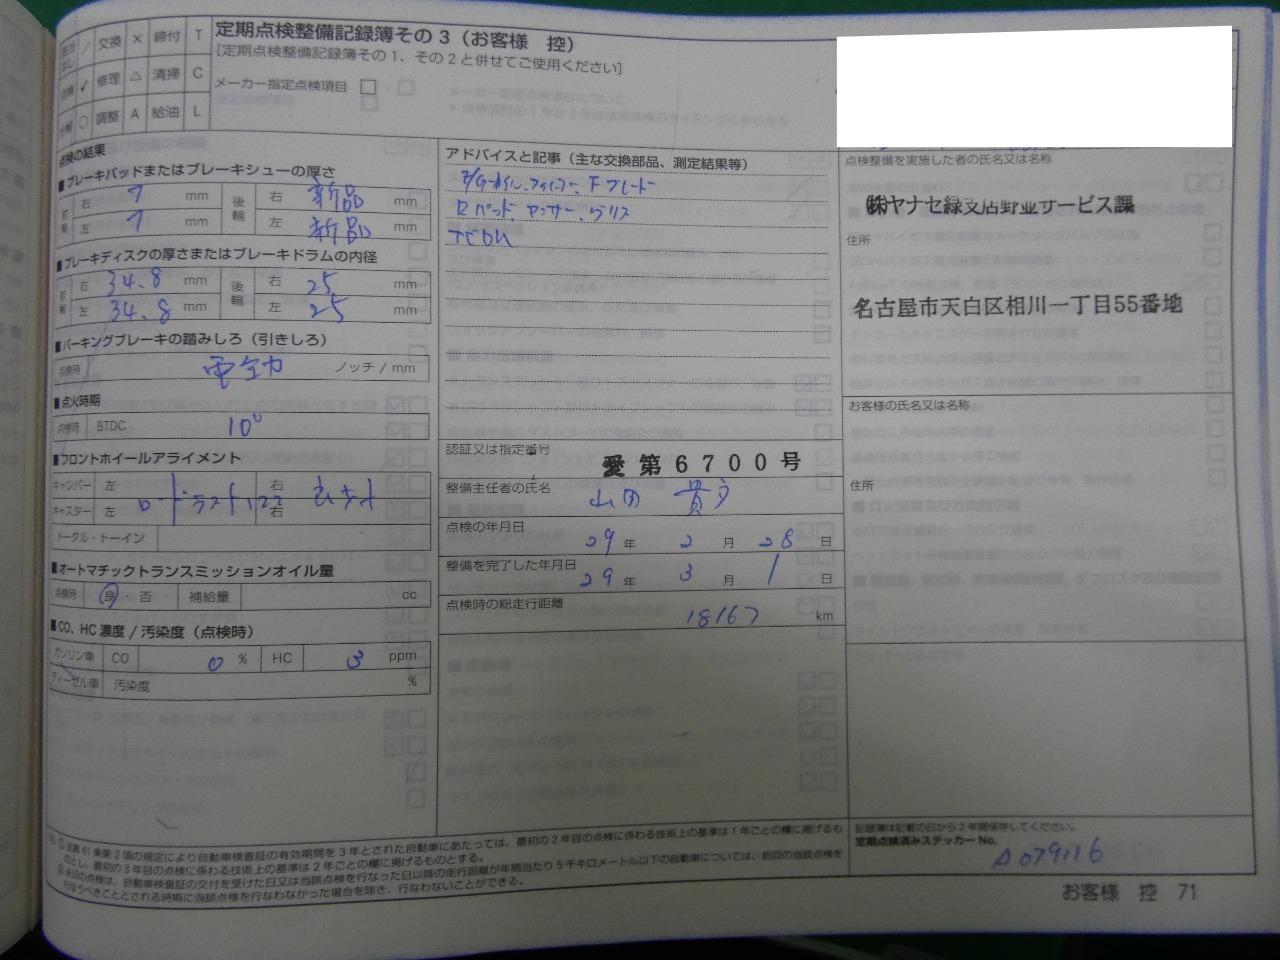 交換 × 締付 T
点検 ✓ 修理 △ 清掃 C
○ 調整 A 給油 L
定期点検整備記録簿その3（お客様 控）
[定期点検整備記録簿その1、その2と併せてご使用ください]
メーカー指定点検項目 □
点検の結果
■ブレーキパッドまたはブレーキシューの厚さ
前輪 右 7 mm 後輪 右 新品 mm
左 7 mm 左 新品 mm
■ブレーキディスクの厚さまたはブレーキドラムの内径
前輪 右 34.8 mm 後輪 右 25 mm
左 34.8 mm 左 25 mm
■パーキングブレーキの踏みしろ（引きしろ）
点検時 電動 ノッチ / mm
■点火時期
点検時 BTDC 10°
■フロントホイールアライメント
キャンバー 左 右
キャスター 左 右
トータル・トーイン
■オートマチックトランスミッションオイル量
点検時 良・否 補給量 cc
■CO、HC濃度 / 汚染度（点検時）
ガソリン車 CO 0 % HC 3 ppm
ディーゼル車 汚染度 %
アドバイスと記事（主な交換部品、測定結果等）
認証又は指定番号
愛第6700号
整備主任者の氏名
点検の年月日
29 年 2 月 28 日
整備を完了した年月日
29 年 3 月 1 日
点検時の総走行距離
18167 km
点検整備を実施した者の氏名又は名称
㈱ヤナセ緑支店野並サービス課
住所
名古屋市天白区相川一丁目55番地
お客様の氏名又は名称
住所
記録簿は記載の日から2年間保存してください。
定期点検済みステッカーNo.
A079116
①法第61条第2項の規定により自動車検査証の有効期間を3年とされた自動車にあたっては、最初の2年目の点検に係わる技術上の基準は1年ごとの欄に掲げるも
のとし、最初の3年目の点検に係わる技術上の基準は2年ごとの欄に掲げるものとする。
②本回の点検は、自動車検査証の交付を受けた日又は当該点検を行なった日以降の走行距離が年間当たり5千キロメートル以下の自動車については、前回の当該点検を
行なうべきこととされる時期に当該点検を行なわなかった場合を除き、行なわないことができる。
お客様 控 71